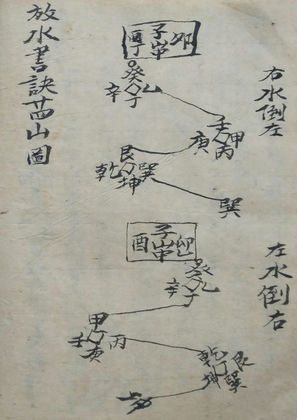 右水倒左
子山
酉
卯
癸
乙
辛
丁
壬
甲
庚
丙
艮
乾
巽
坤
巽
左水倒右
子山
酉
卯
癸
乙
辛
丁
甲
壬
庚
丙
乾
艮
坤
巽
放水書訣廿四山圖